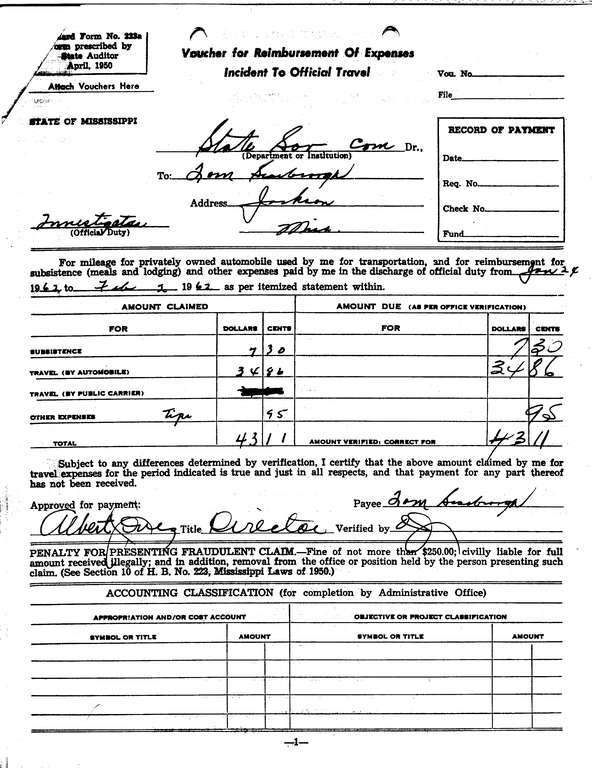 ard Form No. 223a
orm prescribed by
State Auditor
April, 1950
Attach Vouchers Here
Voucher for Reimbursement Of Expenses
Incident To Official Travel
Vou. No.
File
STATE OF MISSISSIPPI
State Sov Com Dr.,
(Department or Institution)
To: Tom Scarbrough
Address Jackson
Miss.
Investigator
(Official Duty)
RECORD OF PAYMENT
Date
Req. No.
Check No.
Fund
For mileage for privately owned automobile used by me for transportation, and for reimbursement for
subsistence (meals and lodging) and other expenses paid by me in the discharge of official duty from Jan 24
1962, to Feb 1 1962 as per itemized statement within.
AMOUNT CLAIMED AMOUNT DUE (AS PER OFFICE VERIFICATION)
FOR DOLLARS CENTS FOR DOLLARS CENTS
SUBSISTENCE 7 30 7 30
TRAVEL (BY AUTOMOBILE) 34 86 34 86
TRAVEL (BY PUBLIC CARRIER)
OTHER EXPENSES Tips 95 95
TOTAL 43 11 AMOUNT VERIFIED: CORRECT FOR 43 11
Subject to any differences determined by verification, I certify that the above amount claimed by me for
travel expenses for the period indicated is true and just in all respects, and that payment for any part thereof
has not been received.
Approved for payment: Payee Tom Scarbrough
Albert Title Director Verified by
PENALTY FOR PRESENTING FRAUDULENT CLAIM.—Fine of not more than $250.00; civilly liable for full
amount received illegally; and in addition, removal from the office or position held by the person presenting such
claim. (See Section 10 of H. B. No. 223, Mississippi Laws of 1950.)
ACCOUNTING CLASSIFICATION (for completion by Administrative Office)
APPROPRIATION AND/OR COST ACCOUNT OBJECTIVE OR PROJECT CLASSIFICATION
SYMBOL OR TITLE AMOUNT SYMBOL OR TITLE AMOUNT
—1—